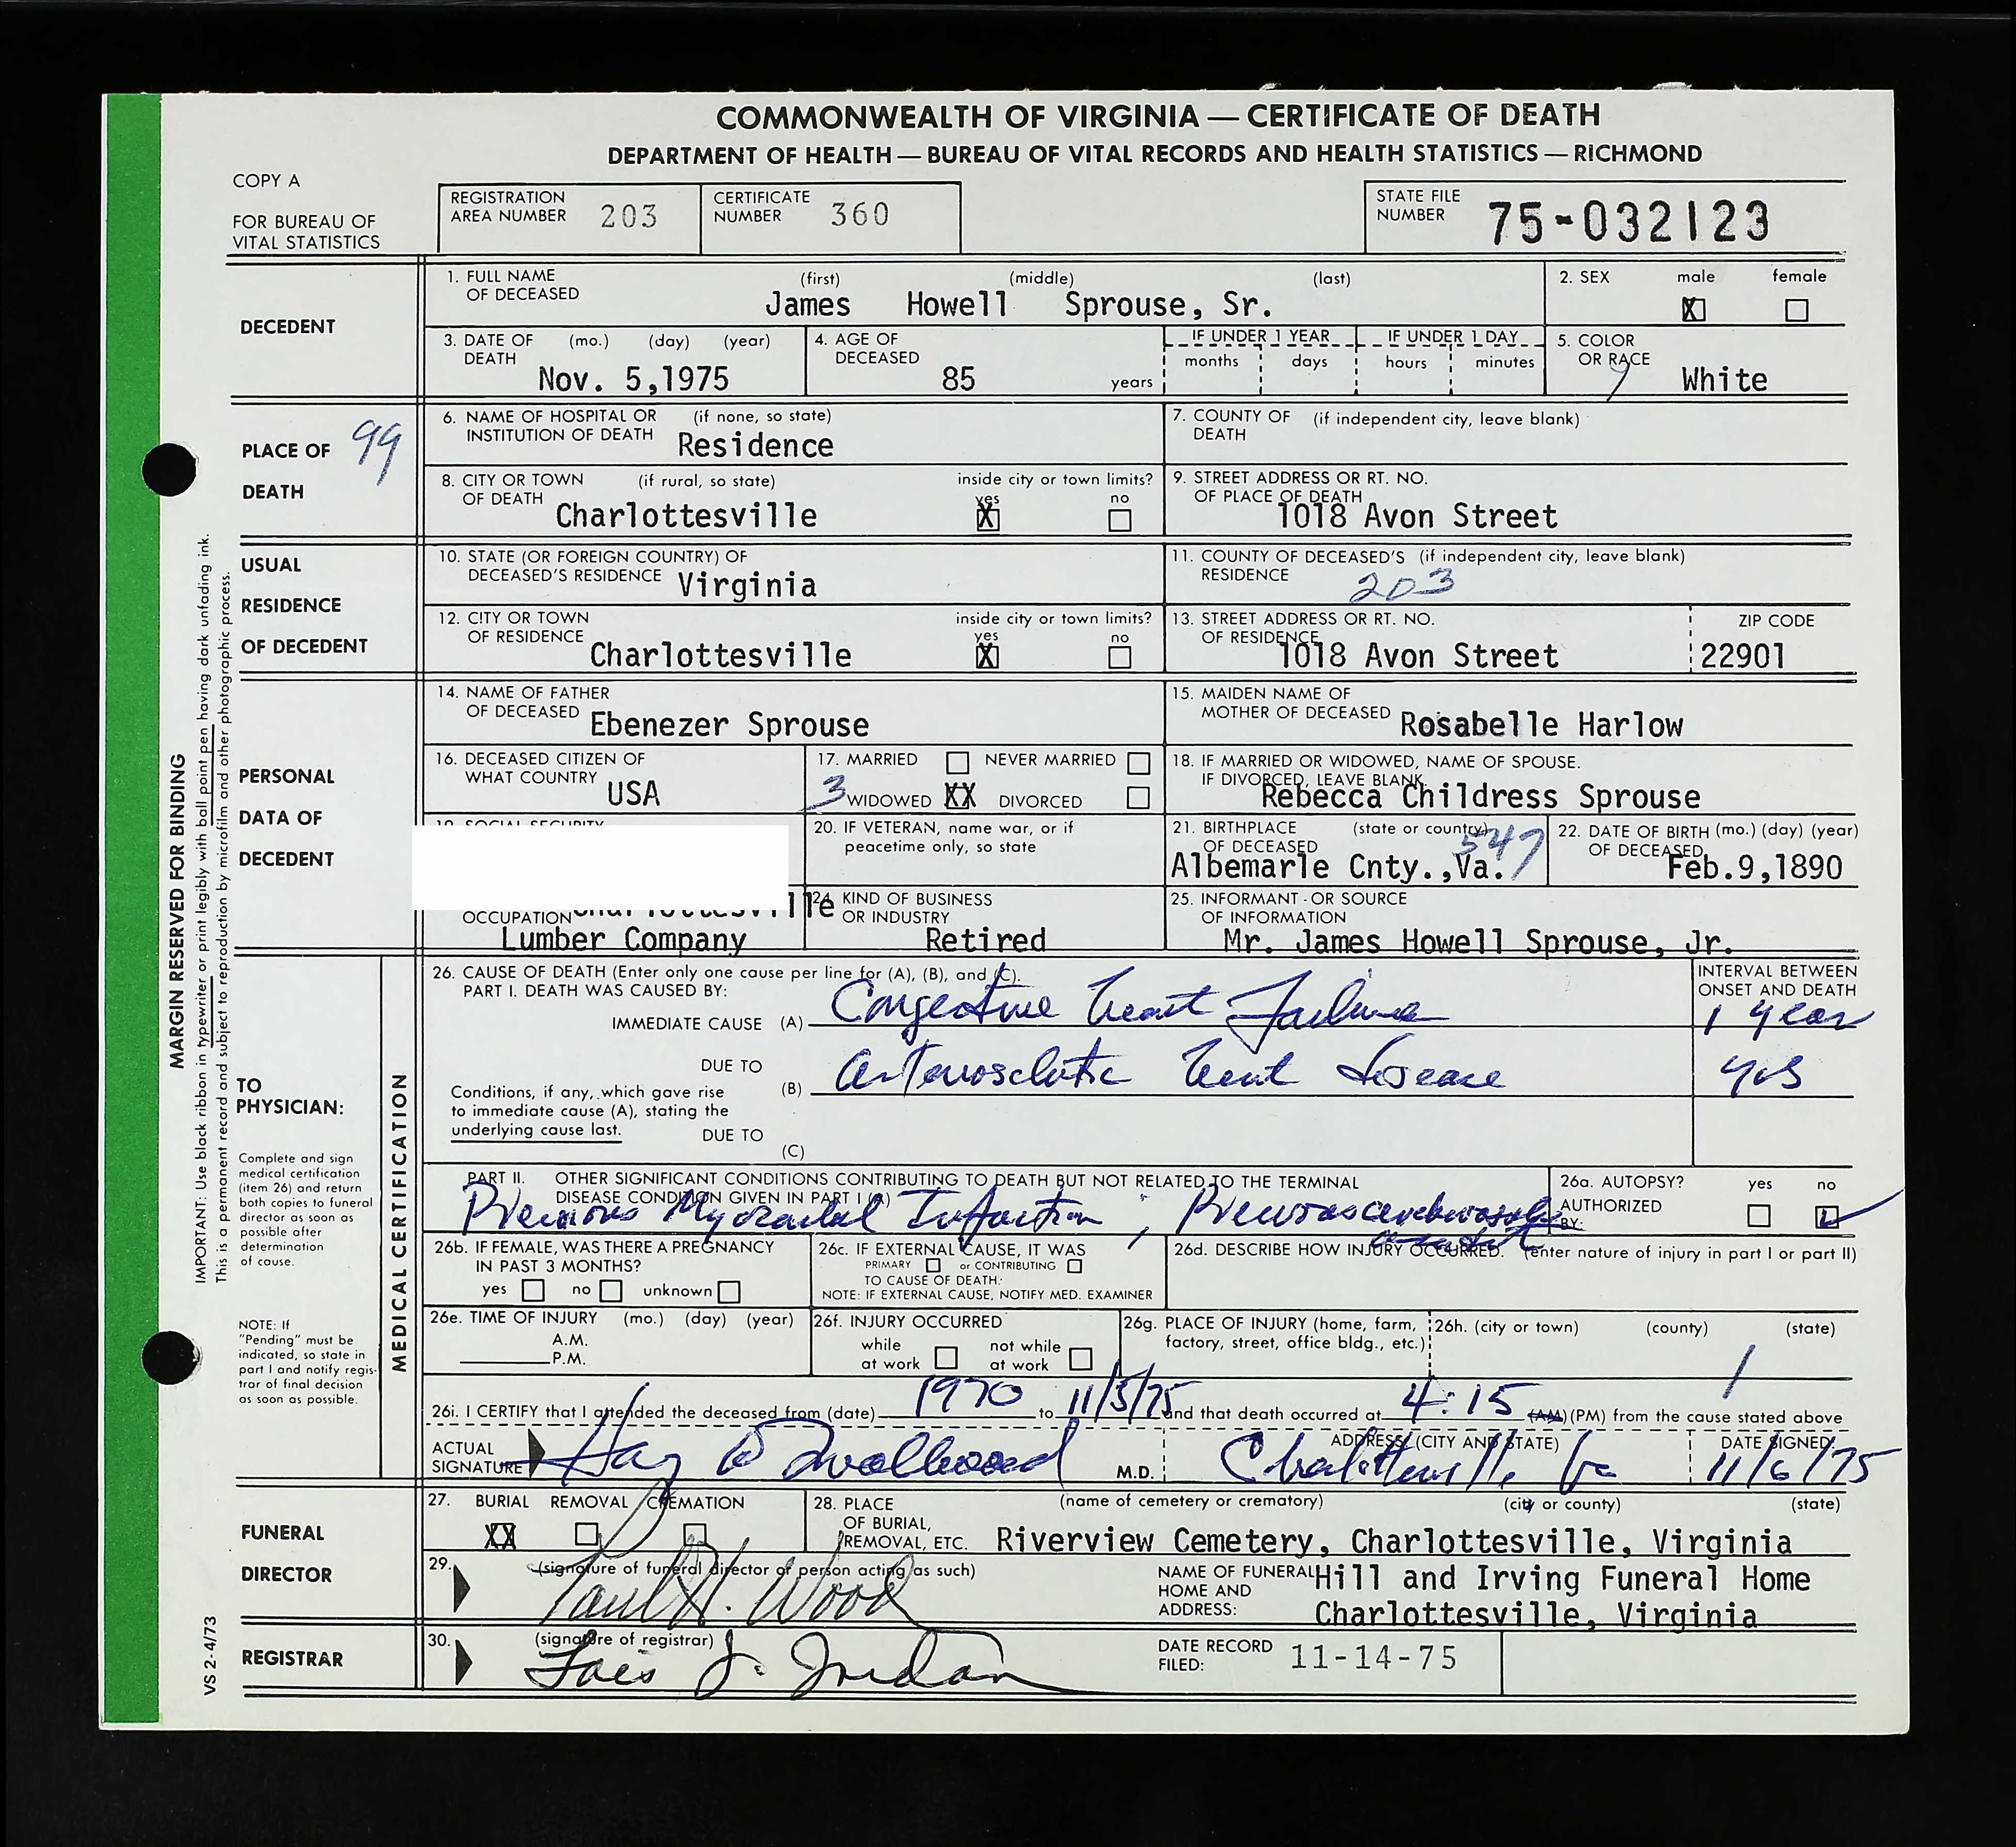 COMMONWEALTH OF VIRGINIA — CERTIFICATE OF DEATH
DEPARTMENT OF HEALTH — BUREAU OF VITAL RECORDS AND HEALTH STATISTICS — RICHMOND
COPY A
FOR BUREAU OF
VITAL STATISTICS
REGISTRATION
AREA NUMBER 203
CERTIFICATE
NUMBER 360
STATE FILE
NUMBER 75-032123
DECEDENT
1. FULL NAME (first) (middle) (last)
OF DECEASED James Howell Sprouse, Sr.
2. SEX male female
X
3. DATE OF (mo.) (day) (year)
DEATH
Nov. 5,1975
4. AGE OF
DECEASED
85 years
IF UNDER 1 YEAR IF UNDER 1 DAY
months days hours minutes
5. COLOR
OR RACE
White
PLACE OF
DEATH
99
6. NAME OF HOSPITAL OR (if none, so state)
INSTITUTION OF DEATH Residence
7. COUNTY OF (if independent city, leave blank)
DEATH
8. CITY OR TOWN (if rural, so state) inside city or town limits?
OF DEATH yes no
Charlottesville X
9. STREET ADDRESS OR RT. NO.
OF PLACE OF DEATH
1018 Avon Street
USUAL
RESIDENCE
OF DECEDENT
10. STATE (OR FOREIGN COUNTRY) OF
DECEASED'S RESIDENCE Virginia
11. COUNTY OF DECEASED'S (if independent city, leave blank)
RESIDENCE 203
12. CITY OR TOWN inside city or town limits?
OF RESIDENCE yes no
Charlottesville X
13. STREET ADDRESS OR RT. NO.
OF RESIDENCE
1018 Avon Street
ZIP CODE
22901
PERSONAL
DATA OF
DECEDENT
14. NAME OF FATHER
OF DECEASED Ebenezer Sprouse
15. MAIDEN NAME OF
MOTHER OF DECEASED Rosabelle Harlow
16. DECEASED CITIZEN OF
WHAT COUNTRY USA
17. MARRIED NEVER MARRIED
3 WIDOWED XX DIVORCED
18. IF MARRIED OR WIDOWED, NAME OF SPOUSE.
IF DIVORCED, LEAVE BLANK
Rebecca Childress Sprouse
19. SOCIAL SECURITY
20. IF VETERAN, name war, or if
peacetime only, so state
21. BIRTHPLACE (state or country)
OF DECEASED 547
Albemarle Cnty.,Va.
22. DATE OF BIRTH (mo.) (day) (year)
OF DECEASED
Feb.9,1890
OCCUPATION Charlottesville
Lumber Company
24. KIND OF BUSINESS
OR INDUSTRY
Retired
25. INFORMANT - OR SOURCE
OF INFORMATION
Mr. James Howell Sprouse, Jr.
TO
PHYSICIAN:
Complete and sign
medical certification
(item 26) and return
both copies to funeral
director as soon as
possible after
determination
of cause.
NOTE: If
"Pending" must be
indicated, so state in
part I and notify regis-
trar of final decision
as soon as possible.
MEDICAL CERTIFICATION
26. CAUSE OF DEATH (Enter only one cause per line for (A), (B), and (C).
PART I. DEATH WAS CAUSED BY:
INTERVAL BETWEEN
ONSET AND DEATH
IMMEDIATE CAUSE (A) Congestive heart Failure 1 year
DUE TO
(B) Arteriosclerotic heart disease yrs
Conditions, if any, which gave rise
to immediate cause (A), stating the
underlying cause last. DUE TO
(C)
PART II. OTHER SIGNIFICANT CONDITIONS CONTRIBUTING TO DEATH BUT NOT RELATED TO THE TERMINAL
DISEASE CONDITION GIVEN IN PART I (A)
Previous Myocardial Infarction ; Previous cerebrovascular
accident
26a. AUTOPSY? yes no
AUTHORIZED
BY:
26b. IF FEMALE, WAS THERE A PREGNANCY
IN PAST 3 MONTHS?
yes no unknown
26c. IF EXTERNAL CAUSE, IT WAS
PRIMARY or CONTRIBUTING
TO CAUSE OF DEATH:
NOTE: IF EXTERNAL CAUSE, NOTIFY MED. EXAMINER
26d. DESCRIBE HOW INJURY OCCURRED. (enter nature of injury in part I or part II)
26e. TIME OF INJURY (mo.) (day) (year)
A.M.
P.M.
26f. INJURY OCCURRED
while not while
at work at work
26g. PLACE OF INJURY (home, farm,
factory, street, office bldg., etc.)
26h. (city or town) (county) (state)
26i. I CERTIFY that I attended the deceased from (date) 1970 to 11/5/75 and that death occurred at 4:15 (AM) (PM) from the cause stated above
ACTUAL
SIGNATURE M.D.
ADDRESS (CITY AND STATE)
Charlottesville Va
DATE SIGNED:
11/6/75
FUNERAL
DIRECTOR
27. BURIAL REMOVAL CREMATION
XX
28. PLACE (name of cemetery or crematory) (city or county) (state)
OF BURIAL,
REMOVAL, ETC. Riverview Cemetery, Charlottesville, Virginia
29. (signature of funeral director or person acting as such)
Paul H. Wood
NAME OF FUNERAL Hill and Irving Funeral Home
HOME AND
ADDRESS: Charlottesville, Virginia
REGISTRAR
30. (signature of registrar)
Lois J. Jordan
DATE RECORD
FILED: 11-14-75
MARGIN RESERVED FOR BINDING
IMPORTANT: Use black ribbon in typewriter or print legibly with ball point pen having dark unfading ink.
This is a permanent record and subject to reproduction by microfilm and other photographic process.
VS 2-4/73